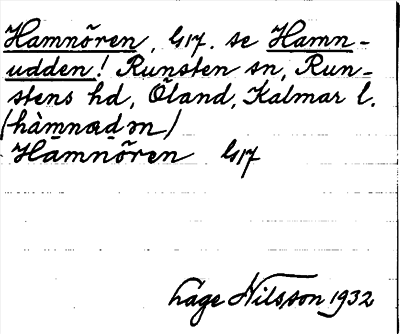 Hamnören, G17. se Hamn-
udden! Runsten sn, Run-
stens hd, Öland, Kalmar l.
Hamnören G17
Låge Nilsson 1932